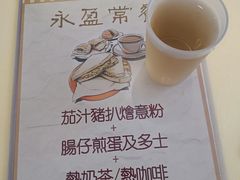 永盈常餐
茄汁豬扒燴意粉
+
腸仔煎蛋及多士
+
熱奶茶/熱咖啡